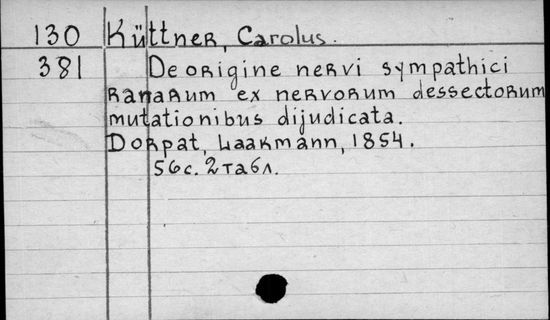 130 Küttner, Carolus.
381 De origine nervi sympathici
ranarum ex nervorum dessectorum
mutationibus dijudicata.
Dorpat, Laakmann, 1854.
56с. 2 табл.